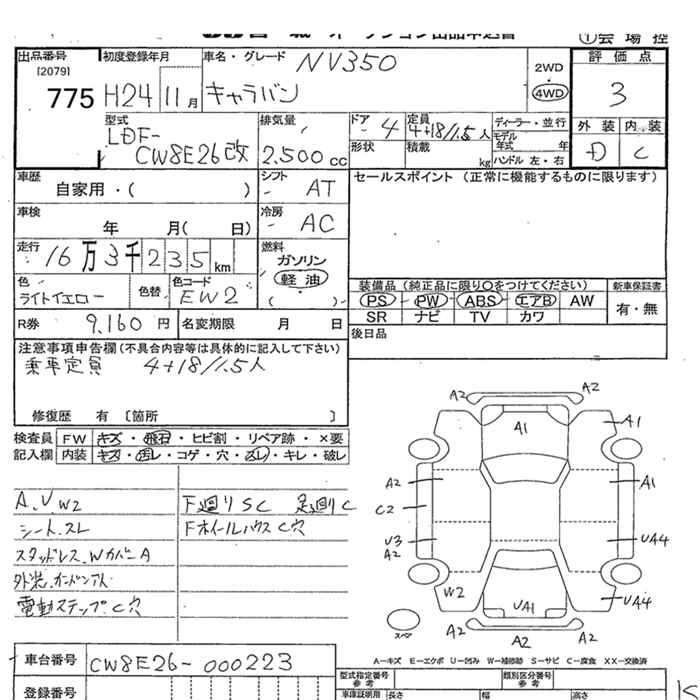 出品番号 初度登録年月 車名・グレード NV350 評価点
[2079] 2WD
775 H24 11月 キャラバン 4WD 3
型式 排気量 ドア 4 定員 4+18/1.5人 ディーラー・並行 外装 内装
LDF- モデル年式 年 D C
CW8E26改 2.500cc 形状 積載 kg ハンドル 左・右
車歴 シフト セールスポイント (正常に機能するものに限ります)
自家用・( ) AT
車検 冷房
年 月( 日) AC
走行 16万3千235km 燃料
ガソリン
色 色替 色コード 軽油 装備品 (純正品に限り○をつけてください) 新車保証書
ライトイエロー EW2 ( ) PS PW ABS エアB AW 有・無
R券 9,160円 名変期限 月 日 SR ナビ TV カワ
注意事項申告欄 (不具合内容等は具体的に記入して下さい) 後日品
乗車定員 4+18/1.5人
修復歴 有 〔箇所 〕
検査員 FW キズ・飛石・ヒビ割・リペア跡・×要
記入欄 内装 キズ・汚レ・コゲ・穴・スレ・キレ・破レ
A2 A2
A1 A1
A2 A1
C2
U3 UA4
A2
W2 UA1 UA4
A2 A2 A2
スペア
A.U.W2 F廻りSC 足廻りC
シート.スレ FホイールハウスC穴
スタッドレス.WカバーA
電動ステップC穴
A―キズ E―エクボ U―凹み W―補修跡 S―サビ C―腐食 XX―交換済
車台番号 CW8E26-000223
型式指定番号 参考 類別区分番号 参考
登録番号 車庫証明用 長さ 幅 高さ